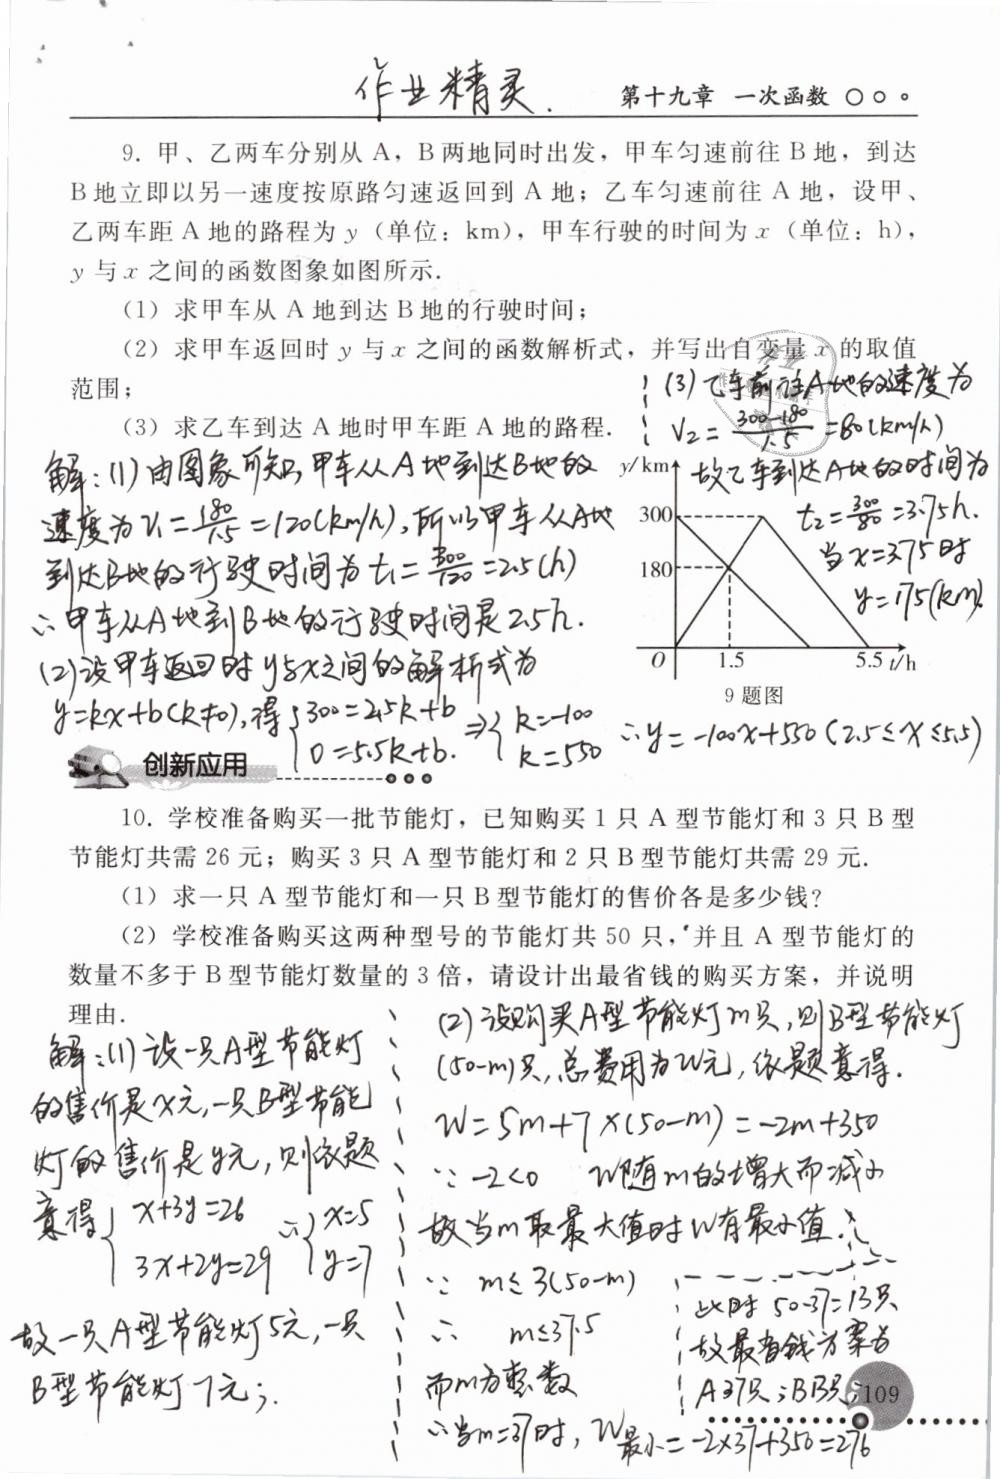 作业精灵.
第十九章 一次函数
9. 甲、乙两车分别从 A，B 两地同时出发，甲车匀速前往 B 地，到达
B 地立即以另一速度按原路匀速返回到 A 地；乙车匀速前往 A 地，设甲、
乙两车距 A 地的路程为 y（单位：km），甲车行驶的时间为 x（单位：h），
y 与 x 之间的函数图象如图所示.
（1）求甲车从 A 地到达 B 地的行驶时间；
（2）求甲车返回时 y 与 x 之间的函数解析式，并写出自变量 x 的取值
范围；
（3）求乙车到达 A 地时甲车距 A 地的路程.
解：(1) 由图象可知，甲车从A地到达B地的
速度为 V1 = 180/1.5 = 120(km/h)，所以甲车从A地
到达B地的行驶时间为 t1 = 300/120 = 2.5(h)
∴甲车从A地到B地的行驶时间是2.5h.
(2)设甲车返回时y与x之间的解析式为
y=kx+b(k≠0)，得{300=2.5k+b
0=5.5k+b.
⇒{k=-100
k=550
∴y=-100x+550 (2.5≤x≤5.5)
(3) 乙车前往A地的速度为
V2 = 300-180/1.5 = 80(km/h)
故乙车到达A地的时间为
t2 = 300/80 = 3.75h.
当x=3.75时
y=175(km).
y/km
300
180
O 1.5 5.5 t/h
9 题图
创新应用
10. 学校准备购买一批节能灯，已知购买 1 只 A 型节能灯和 3 只 B 型
节能灯共需 26 元；购买 3 只 A 型节能灯和 2 只 B 型节能灯共需 29 元.
（1）求一只 A 型节能灯和一只 B 型节能灯的售价各是多少钱？
（2）学校准备购买这两种型号的节能灯共 50 只，并且 A 型节能灯的
数量不多于 B 型节能灯数量的 3 倍，请设计出最省钱的购买方案，并说明
理由.
解：(1) 设一只A型节能灯
的售价是x元，一只B型节能
灯的售价是y元，则依题
意得{x+3y=26
3x+2y=29
∴{x=5
y=7
故一只A型节能灯5元，一只
B型节能灯7元；.
(2) 设购买A型节能灯m只，则B型节能灯
(50-m)只，总费用为W元，依题意得.
W=5m+7×(50-m)=-2m+350
∵-2<0 W随m的增大而减小
故当m取最大值时W有最小值.
∵ m≤3(50-m)
∴ m≤37.5
而m为整数
∴当m=37时，W最小=-2×37+350=276
此时 50-37=13只
故最省钱方案为
A37只；B13只；
109